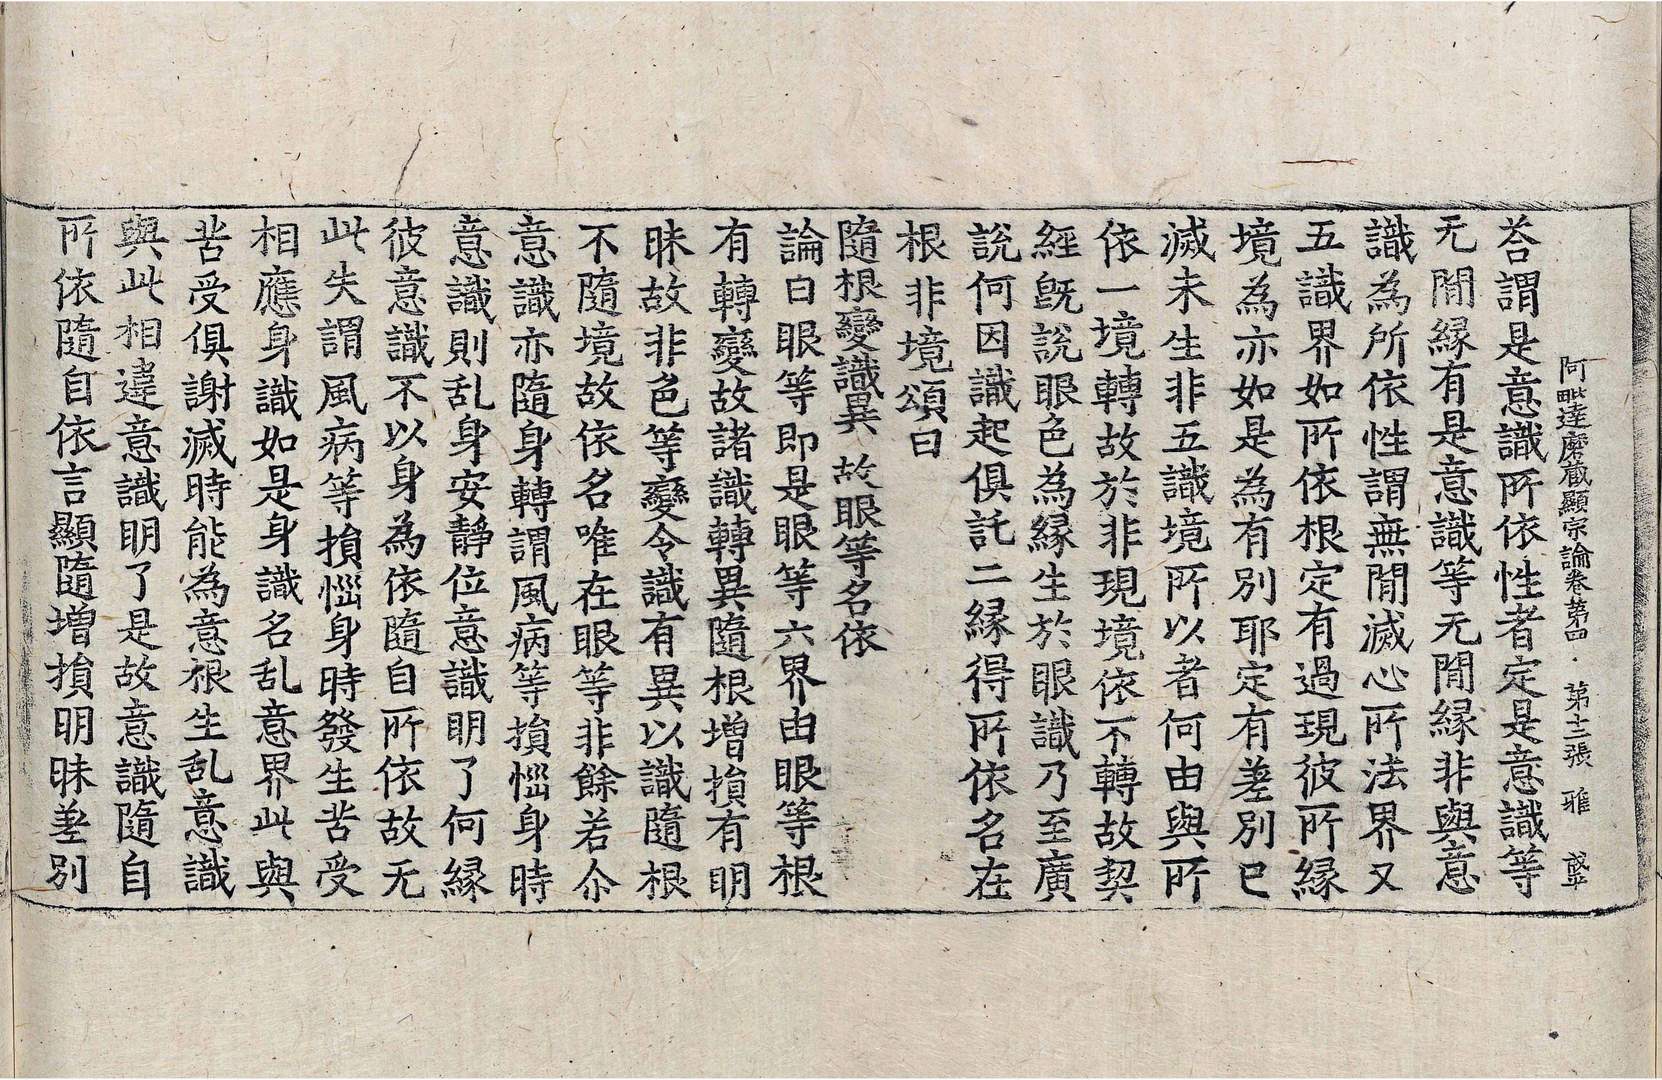 阿毗達磨蔵顯宗論卷第四 第十三張 雅
荅謂是意識所依性者定是意識等
无閒緣有是意識等无閒緣非與意
識為所依性謂無閒滅心所法界又
五識界如所依根定有過現彼所緣
境為亦如是為有別耶定有差別已
滅未生非五識境所以者何由與所
依一境轉故於非現境依不轉故契
經旣說眼色為緣生於眼識乃至廣
說何因識起俱託二緣得所依名在
根非境頌曰
隨根變識異 故眼等名依
論曰眼等即是眼等六界由眼等根
有轉變故諸識轉異隨根增損有明
昧故非色等變令識有異以識隨根
不隨境故依名唯在眼等非餘若尒
意識亦隨身轉謂風病等損惱身時
意識則乱身安靜位意識明了何緣
彼意識不以身為依隨自所依故无
此失謂風病等損惱身時發生苦受
相應身識如是身識名乱意界此與
苦受俱謝滅時能為意根生乱意識
與此相違意識明了是故意識隨自
所依隨自依言顯隨增損明昧差別